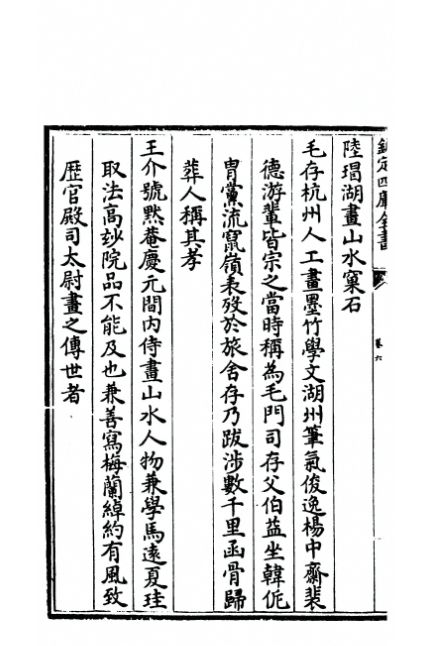 欽定四庫全書
卷六
陸琩湖畫山水窠石
毛存杭州人工畫墨竹學文湖州筆氣俊逸楊中齋裴
德游輩皆宗之當時稱為毛門司存父伯益坐韓侂
胄黨流竄嶺表殁於旅舍存乃跋涉數千里函骨歸
葬人稱其孝
王介號黙菴慶元間内侍畫山水人物兼學馬逺夏珪
取法高玅院品不能及也兼善寫梅蘭綽約有風致
歴官殿司太尉畫之傳世者